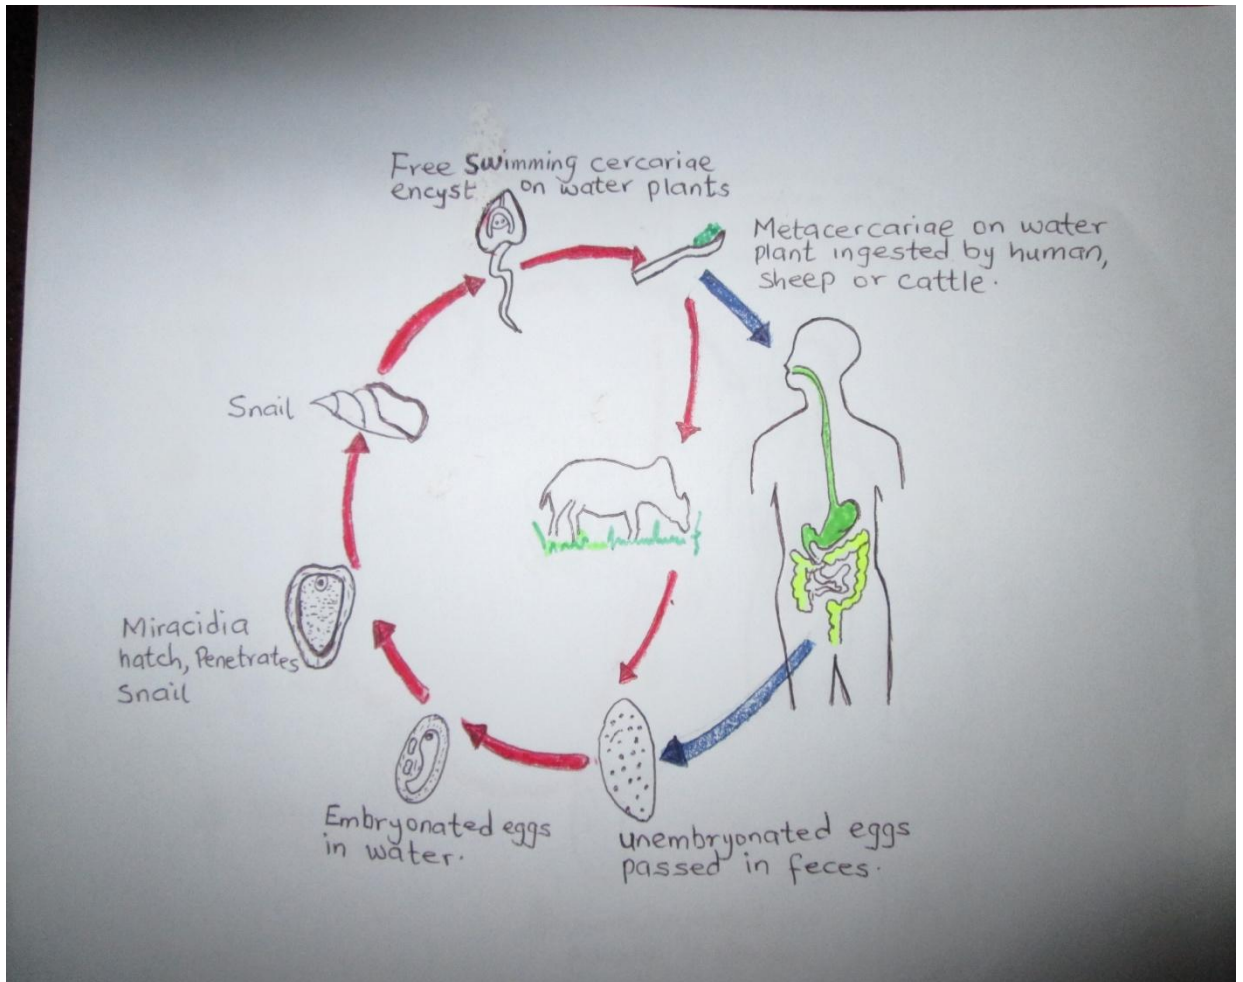 Free Swimming cercariae
encyst on water plants
Metacercariae on water
plant ingested by human,
sheep or cattle.
Snail
Miracidia
hatch, Penetrates
Snail
Embryonated eggs
in water.
unembryonated eggs
passed in feces.